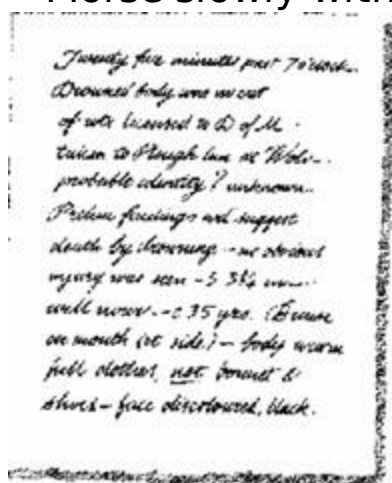 Morse slowly with
Twenty five minutes past 7 o'clock.
Drowned body was
of
taken to Plough Inn at Wolv-
probable identity? unknown.
Prelim findings suggest
death by drowning - no obvious
injury was seen - 5' 3¼
well - c 35 yrs. Bruise
on mouth (rt side) - body warm
full clothes, not bonnet &
shoes - face discoloured, black.